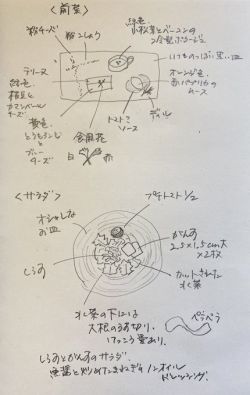 〈前菜〉
粉チーズ
粉こしょう
緑色
小松菜とベーコンの
冷製ポタージュ
いつものっぽい黒い皿
テリーヌ
緑色
枝豆と
カマンベール
チーズ
オレンジ色
赤パプリカの
ムース
黄色
とうもろこしと
ブルー
チーズ
トマト
ソース
ディル
食用花
白
赤
〈サラダ〉
プチトマト1/2
オシャレな
お皿
がんす
2.5×1.5cm大
×2枚
しらす
カットされた
水菜
水菜の下には
大根のうす切り。
けっこう量あり。
ペラペラ
しらすとがんすのサラダ。
魚醤と炒めたたまねぎのノンオイル
ドレッシング。